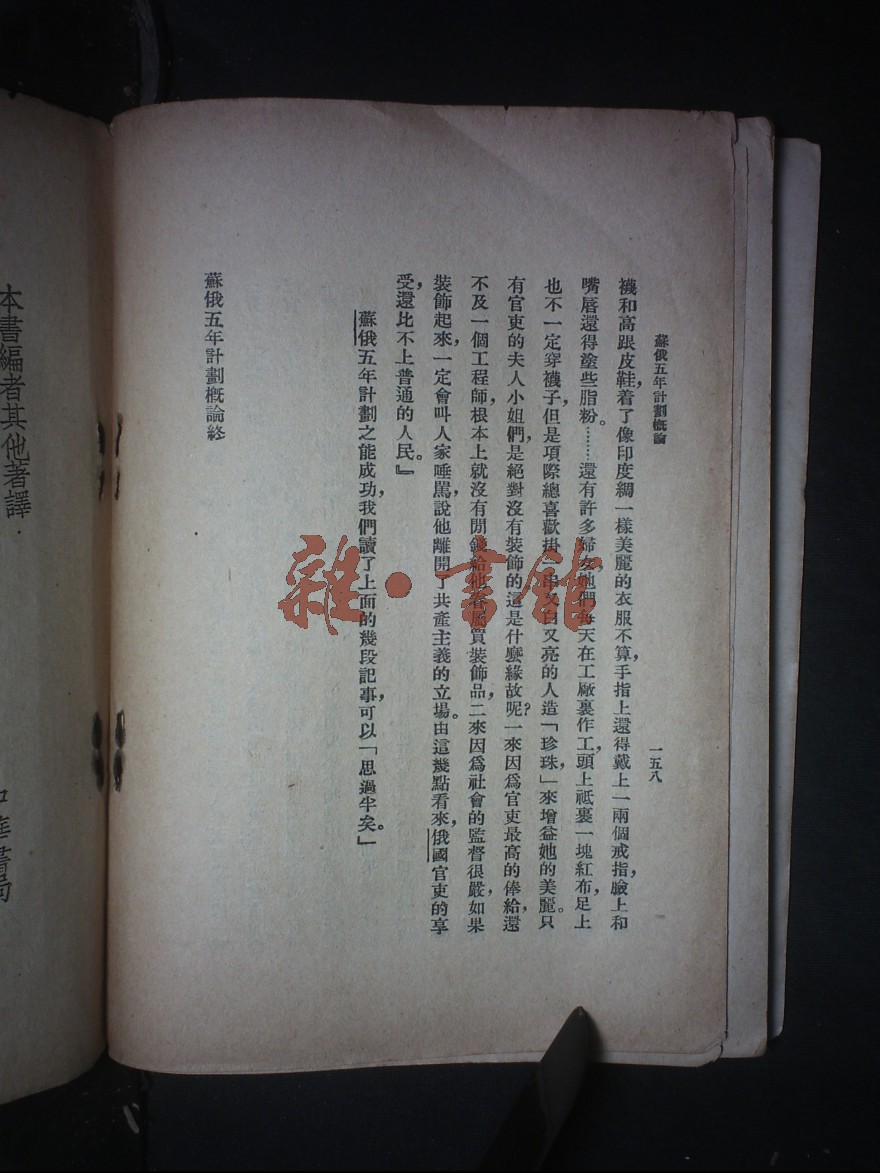 蘇俄五年計劃概論
一五八
襪和高跟皮鞋，着了像印度綢一樣美麗的衣服不算，手指上還得戴上一兩個戒指，臉上和
嘴唇還得塗些脂粉。……還有許多婦女，她們每天在工廠裏作工，頭上祗裹一塊紅布，足上
也不一定穿襪子，但是項際總喜歡掛一串又白又亮的人造「珍珠」，來增益她的美麗。只
有官吏的夫人小姐們，是絕對沒有裝飾的。這是什麼緣故呢？一來因爲官吏最高的俸給，還
不及一個工程師，根本上就沒有閒錢給他眷屬買裝飾品，二來因爲社會的監督很嚴，如果
裝飾起來，一定會叫人家唾罵，說他離開了共產主義的立場。由這幾點看來，俄國官吏的享
受，還比不上普通的人民。』
蘇俄五年計劃之能成功，我們讀了上面的幾段記事，可以「思過半矣。」
蘇俄五年計劃概論終
本書編者其他著譯
中華書局
雜·書館